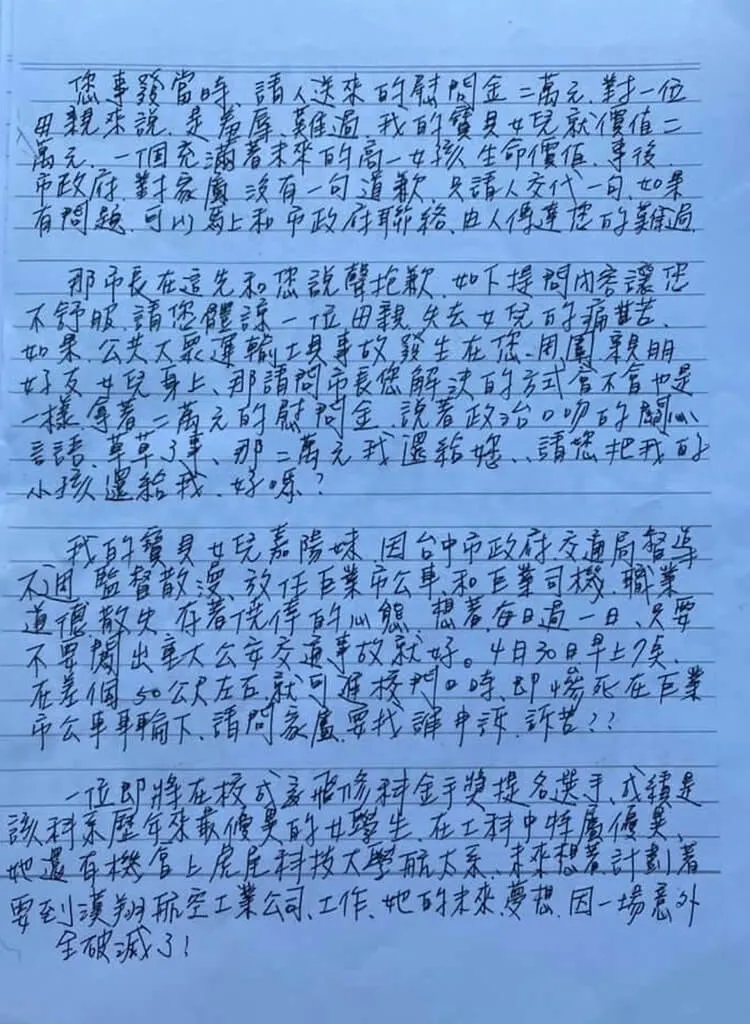 您事發當時、請人送來的慰問金二萬元、對一位
母親來說、是羞辱、難過、我的寶貝女兒就價值二
萬元、一個充滿著未來的高一女孩生命價值、事後、
市政府對家屬沒有一句道歉、只請人交代一句、如果
有問題、可以馬上和市政府聯絡、由人傳達您的難過、
那市長在這先和您說聲抱歉、如下提問內容讓您
不舒服、請您體諒一位母親、失去女兒的痛苦、
如果、公共大眾運輸工具事故發生在您、周圍親朋
好友女兒身上、那請問市長您解決的方式會不會也是
一樣拿著二萬元的慰問金、說著政治口吻的關心
言語、草草了事、那二萬元我還給您、、請您把我的
小孩還給我、好嗎?
我的寶貝女兒嘉陽妹、因台中市政府交通局督導
不週、監督散漫、放任巨業市公車、和巨業司機、職業
道德散失、存著僥倖的心態、想著、每日過一日、只要
不要鬧出重大公安交通事故就好。4月30日早上7點、
在差個50公尺左右就可進校門口時、即慘死在巨業
市公車車輪下、請問家屬、要找誰申訴、訴苦??
一位即將在校成為飛修科金手獎提名選手、成績是
該科系歷年來最優異的女學生、在工科中特屬優異、
她還有機會上虎尾科技大學航太系、未來想著計劃著
要到漢翔航空工業公司、工作、她的未來、夢想、因一場意外
全破滅了!